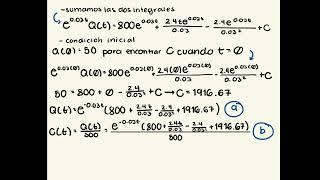 -sumamos las dos integrales
e^0.03t Q(t)=800e^0.03t + 2.4te^0.03t/0.03 - 2.4e^0.03t/0.03² + C
-condición inicial
Q(0)=50 para encontrar C cuando t=0
e^0.03(0) Q(0)=800e^0.03(0) + 2.4(0)e^0.03(0)/0.03 - 2.4e^0.03(0)/0.03² + C
50=800+0- 2.4/0.03² +C → C=1916.67
Q(t)=e^-0.03t (800+ 2.4t/0.03 - 2.4/0.03² +1916.67) a
C(t)= Q(t)/500 = e^-0.03t (800+ 2.4t/0.03 - 2.4/0.03² +1916.67)/500 b